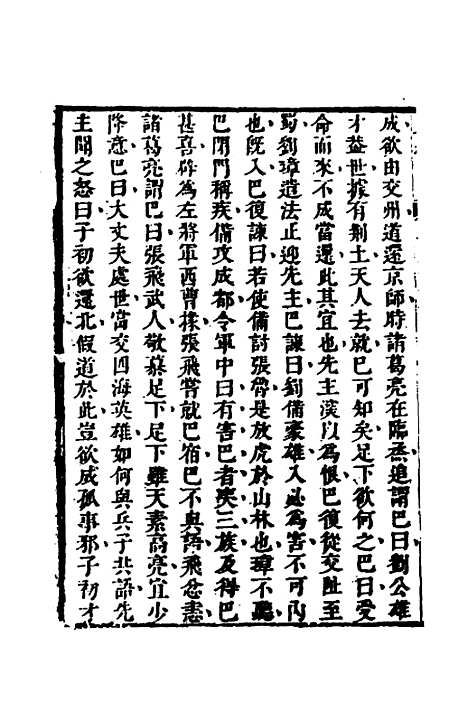 成欲由交州道還京師時諸葛亮在臨烝追謂巴曰劉公雄
才葢世據有荆土天人去就巴可知矣足下欲何之巴曰受
命而來不成當還此其宜也先主深以為恨巴復從交趾至
蜀劉璋遣法正迎先主巴諫曰劉備豪雄入必為害不可內
也旣入巴復諫曰若使備討張魯是放虎於山林也璋不聽
巴閉門稱疾備攻成都令軍中曰有害巴者夾三族及得巴
甚喜辟為左將軍西曹掾張飛嘗就巴宿巴不與語飛忿恚
諸葛亮謂巴曰張飛武人敬慕足下足下雖天素高亮宜少
降意巴曰大丈夫處世當交四海英雄如何與兵子共語先
主聞之怒曰子初欲還北假道於此豈欲成孤事邪子初才